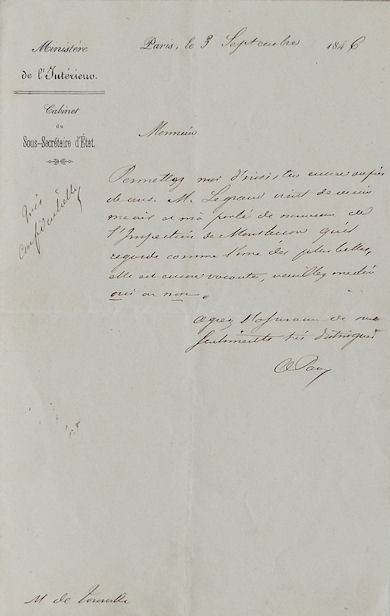 Ministère
de l'Intérieur.
Cabinet
du
Sous-Secrétaire d'État.
Très
Confidentielle
Paris, le 3 Septembre 1846
Monsieur
Permettez moi d'insister encore auprès
de vous. M. Legrand vient de venir
me voir et m'a parlé de nouveau de
l'Inspection de Montlucon qu'il
regarde comme l'une des plus belles,
elle est encore vacante, veuillez me dire
oui ou non.
agréez l'assurance de mes
sentiments très distingués
M de